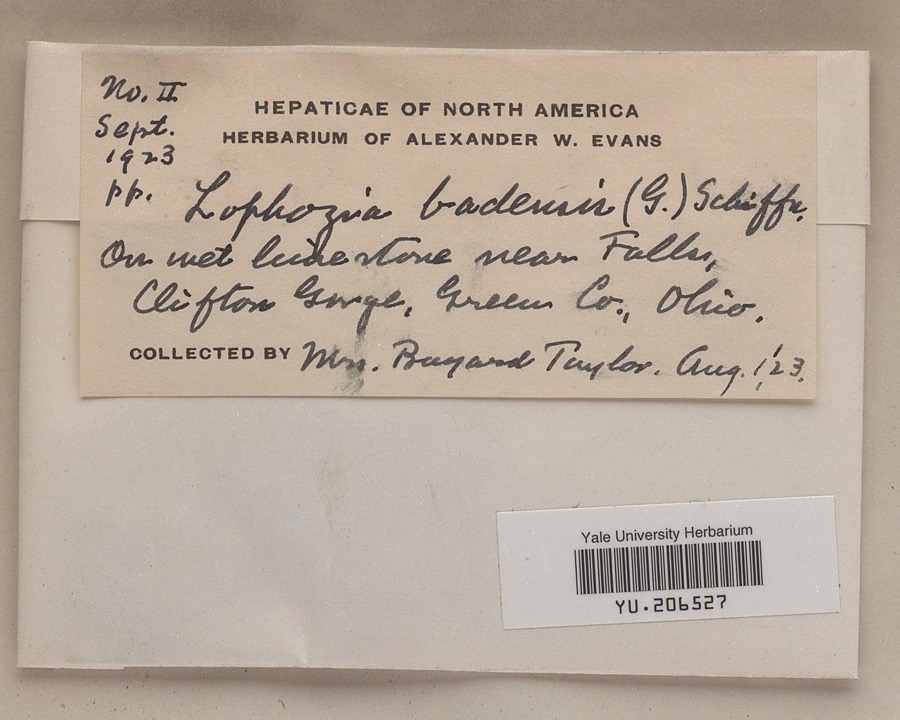 No. II
Sept.
1923
pp.
HEPATICAE OF NORTH AMERICA
HERBARIUM OF ALEXANDER W. EVANS
Lophozia badensis (G.) Schiffn.
On wet limestone near Falls,
Clifton Gorge, Greene Co., Ohio.
COLLECTED BY Mrs. Bayard Taylor. Aug. 1, '23.
Yale University Herbarium
YU.206527